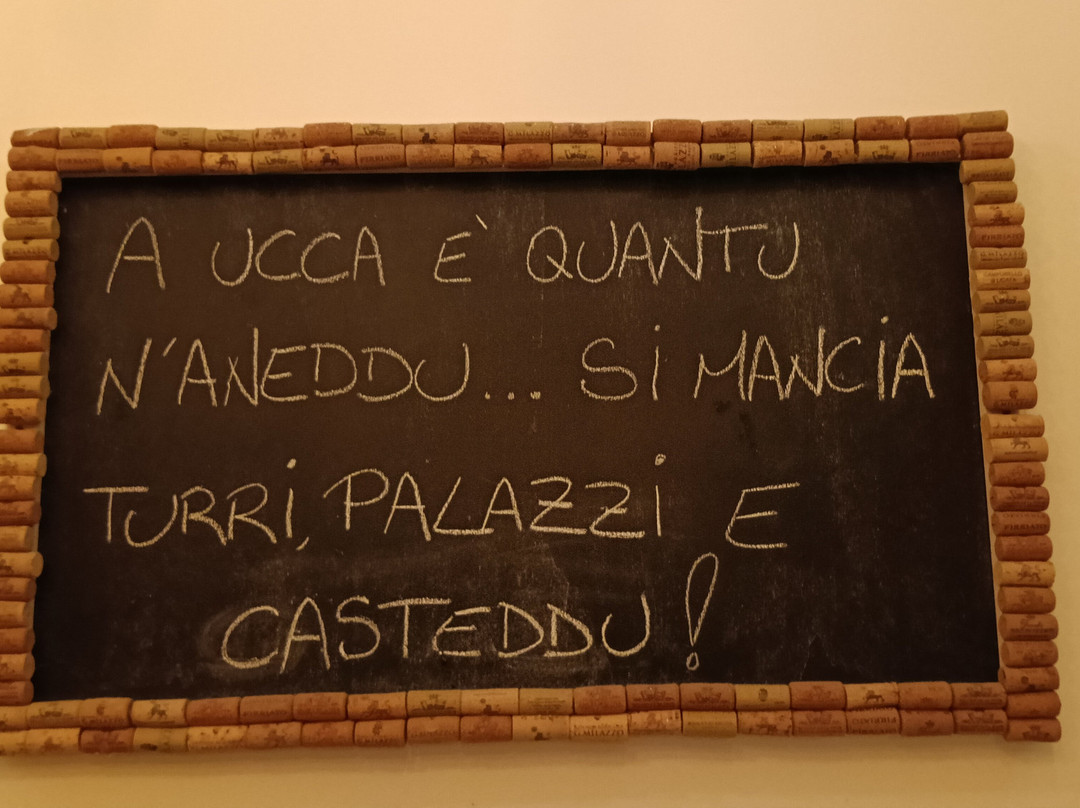 A UCCA È QUANTU
N'ANEDDU... Si MANCiA
TURRi, PALAZZi E
CASTEDDU!